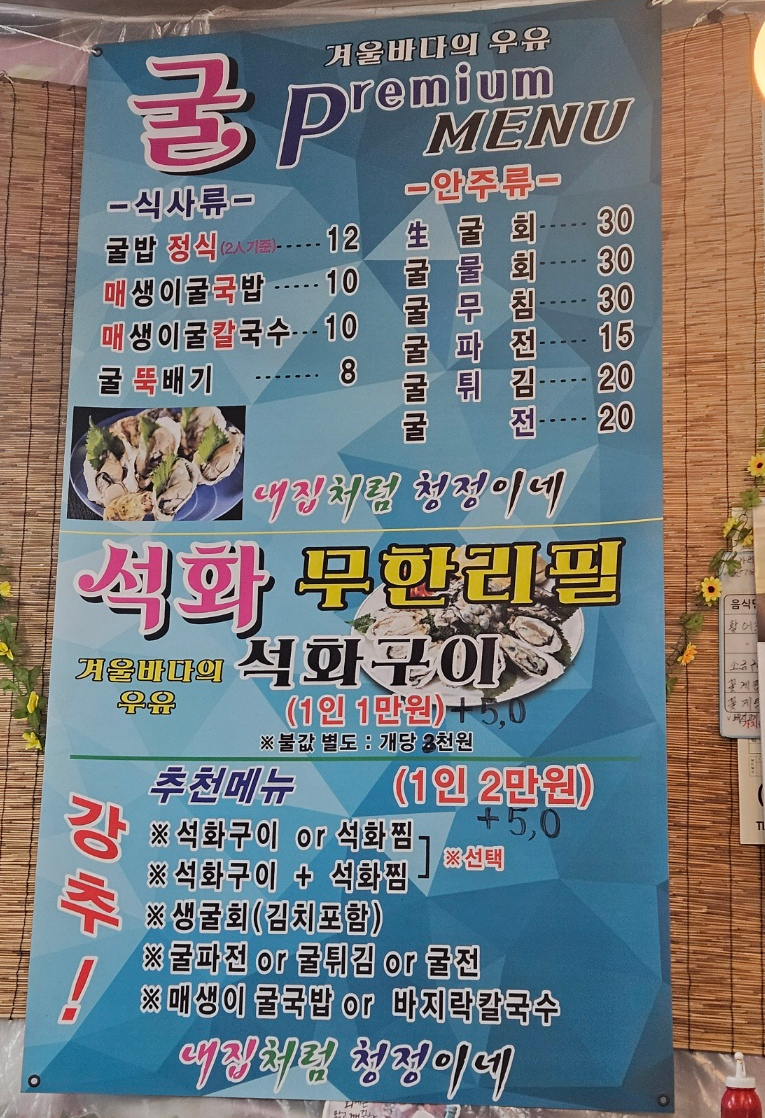 겨울바다의 우유
굴 Premium
MENU
-식사류-
굴밥 정식(2人기준)----- 12
매생이굴국밥 ----- 10
매생이굴칼국수--- 10
굴 뚝배기 ------- 8
-안주류-
生 굴 회----- 30
굴 물 회----- 30
굴 무 침----- 30
굴 파 전----- 15
굴 튀 김----- 20
굴 전----- 20
내집처럼 청정이네
석화 무한리필
겨울바다의
우유
석화구이
(1인 1만원) +5,0
※불값 별도 : 개당 3천원
강추!
추천메뉴 (1인 2만원)
+5,0
※석화구이 or 석화찜
※석화구이 + 석화찜
※선택
※생굴회(김치포함)
※굴파전 or 굴튀김 or 굴전
※매생이 굴국밥 or 바지락칼국수
내집처럼 청정이네